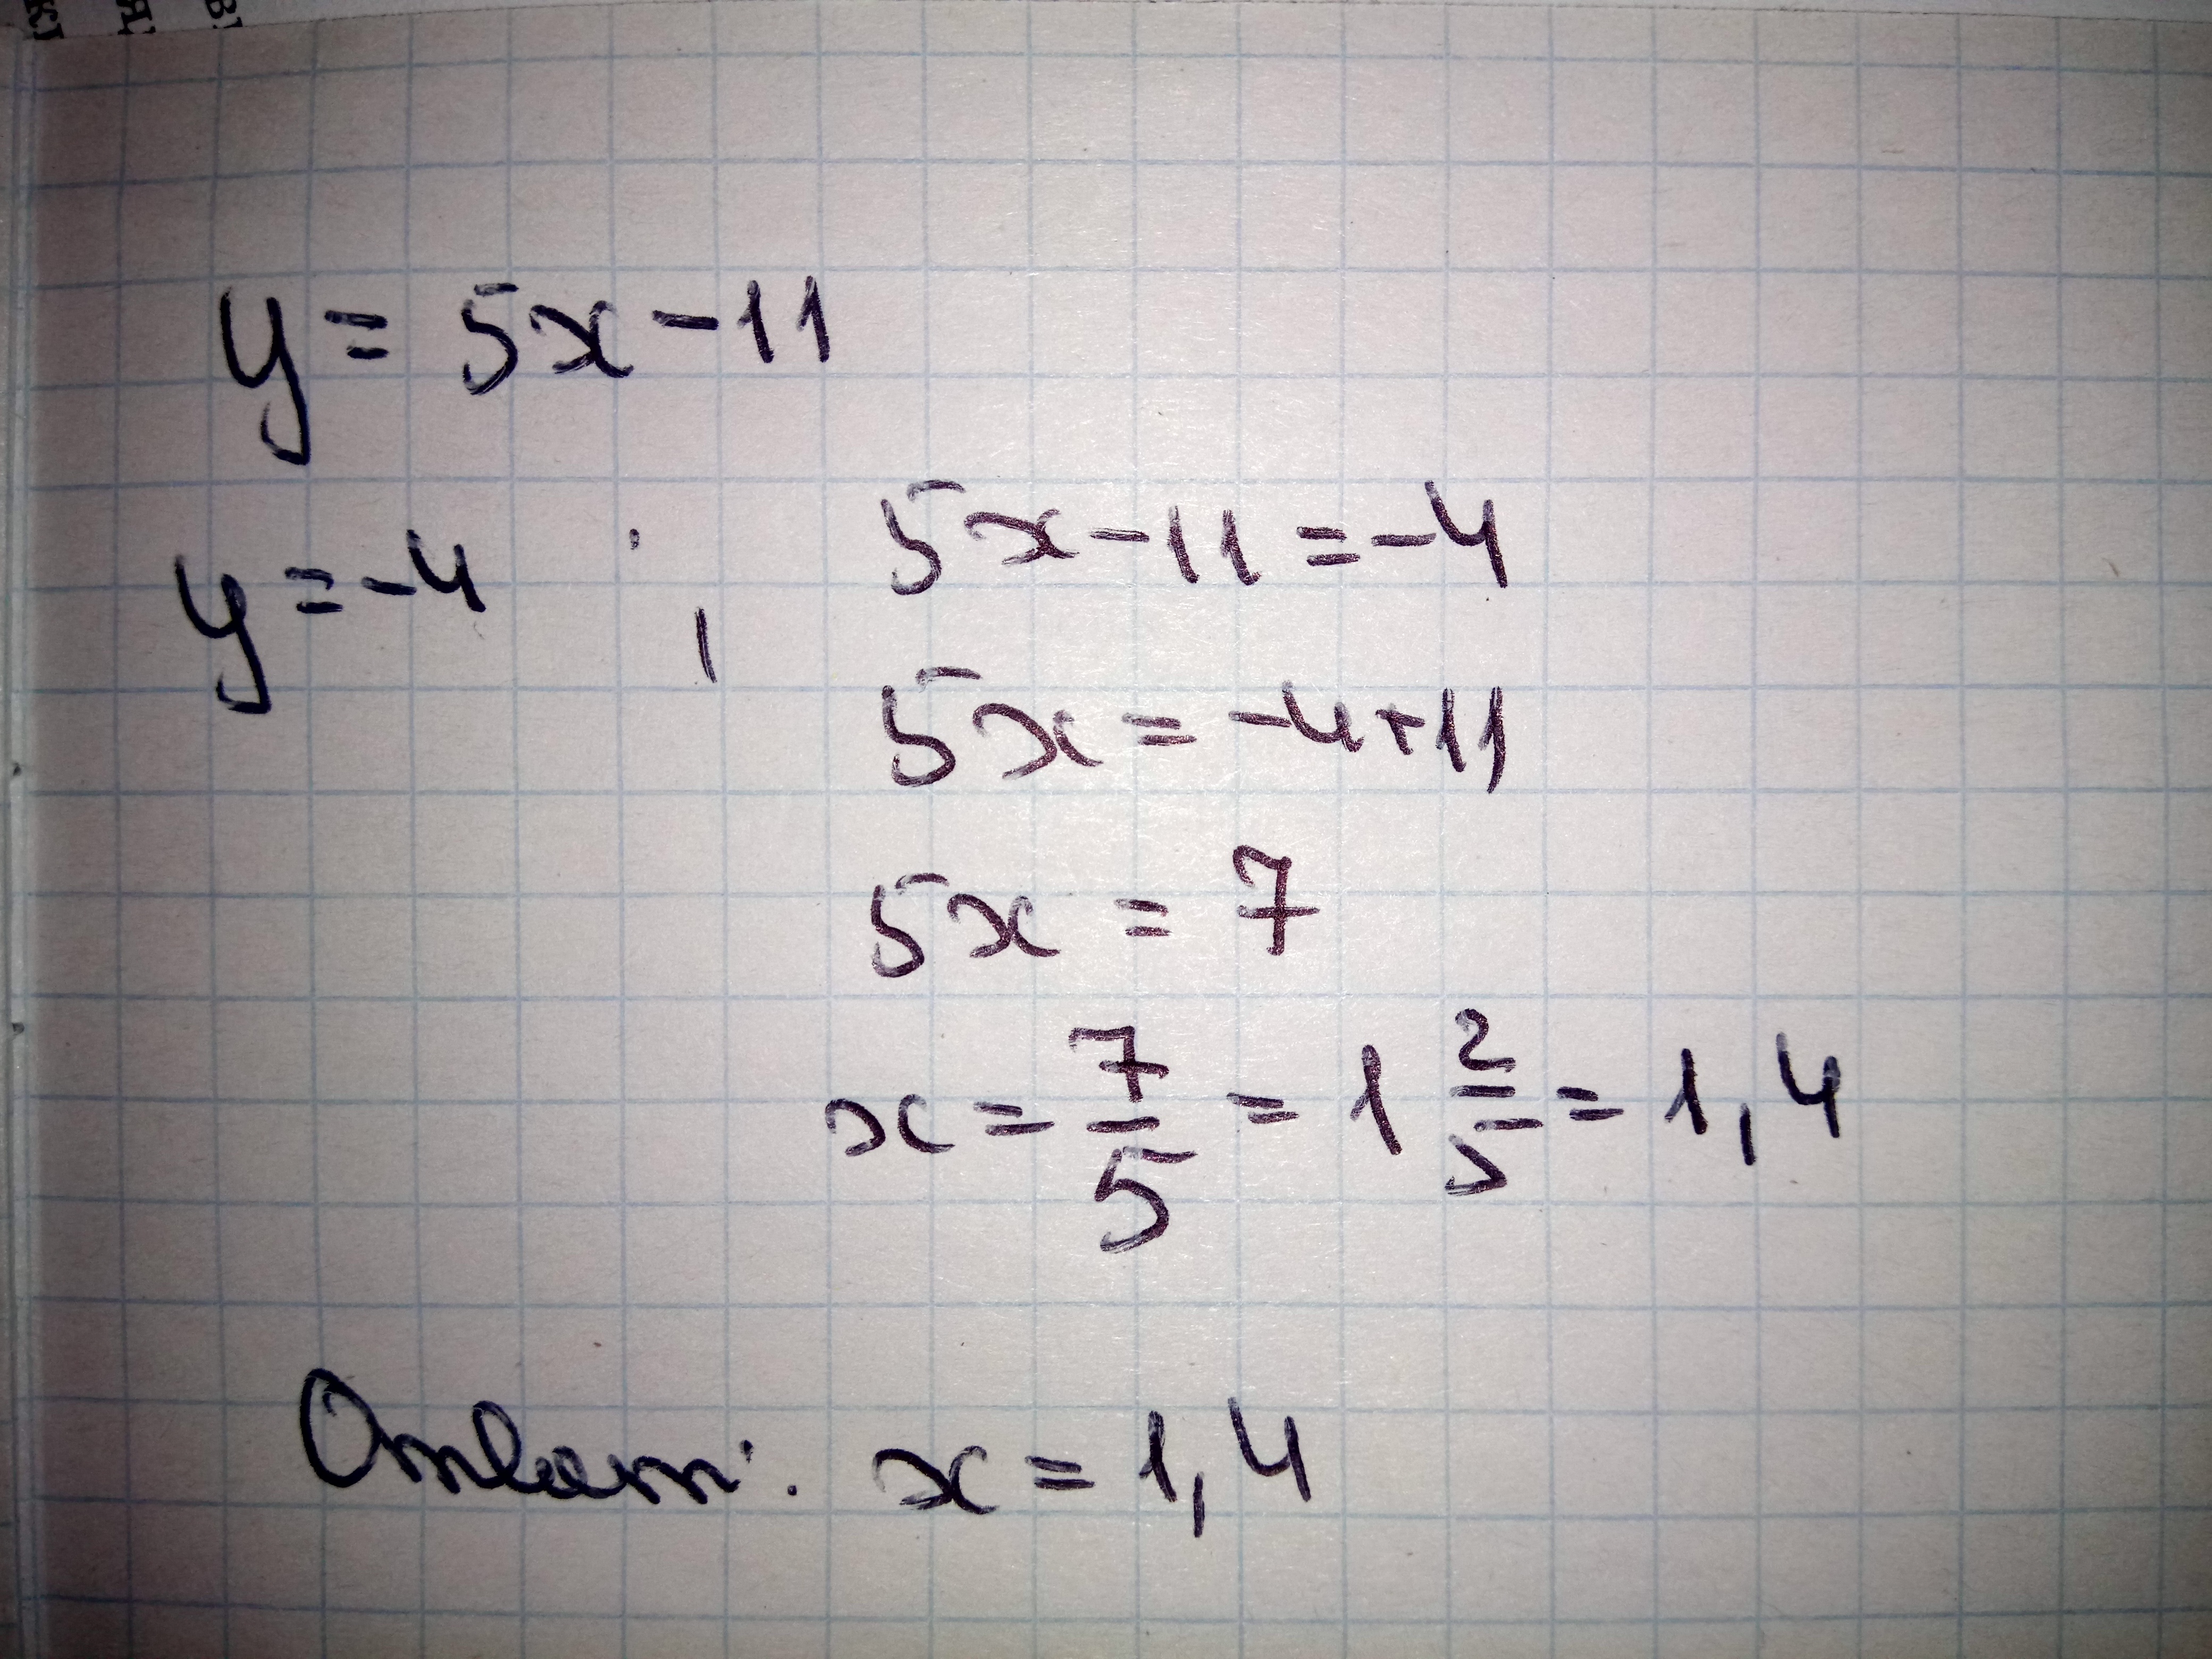 y = 5x - 11
y = -4 ; 5x - 11 = -4
5x = -4 + 11
5x = 7
x = 7/5 = 1 2/5 = 1,4
Ответ: x = 1,4